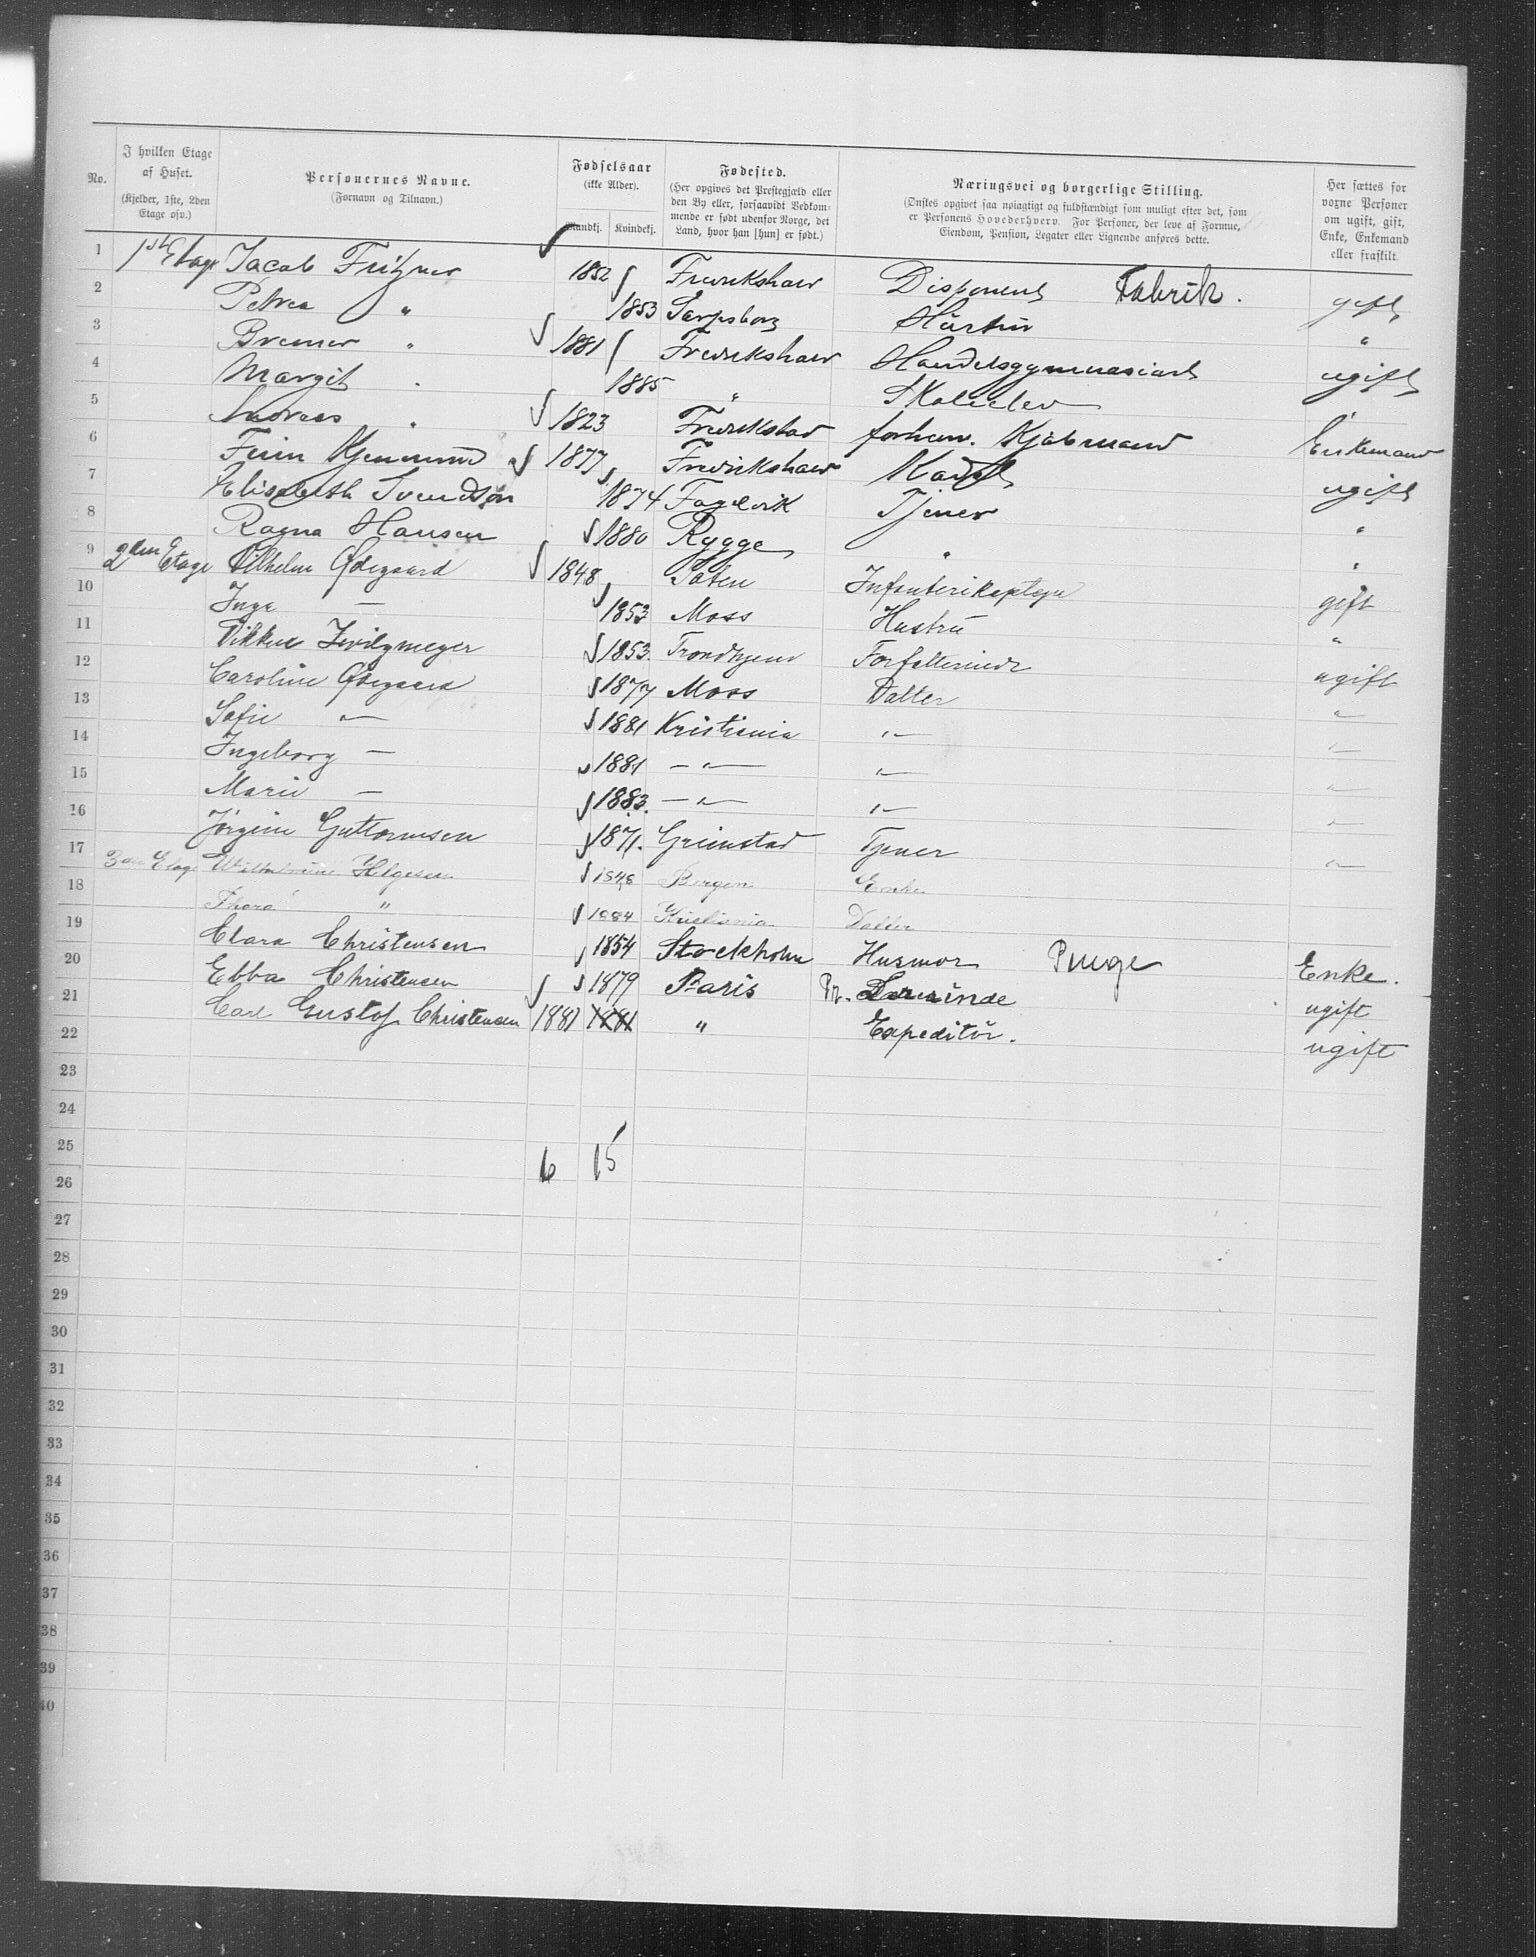 No. | I hvilken Etage af Huset. (Kjelder, 1ste, 2den Etage osv.) | Personernes Navne. (Fornavn og Tilnavn.) | Fødselsaar (ikke Alder). Mandkj. Kvindekj. | Fødested. (Her opgives det Prestegjæld eller den By eller, forsaavidt Vedkommende er født udenfor Norge, det Land, hvor han [hun] er født.) | Næringsvei og borgerlige Stilling. (Ønskes opgivet saa nøiagtigt og fuldstændigt som muligt efter det, som er Personens Hovederhverv. For Personer, der leve af Formue, Eiendom, Pension, Legater eller Lignende anføres dette. | Her sættes for voxne Personer om ugift, gift, Enke, Enkemand eller fraskilt.
1 1ste Etage Jacob Fritzner 1852 Fredrikshald Disponent Fabrik. gift
2 Petrea " 1853 Sarpsborg Hustru "
3 Bremer " 1881 Fredrikshald Handelsgymnasiast ugift
4 Margit " 1885 " Skoleelev "
5 Andreas " 1823 Fredrikstad forhen. Kjøbmand Enkemand
6 Finn 1877 Fredrikshald Kadet ugift
7 Elisabeth Svendsen 1874 Fagervik Tjener "
8 Ragna Hansen 1880 Rygge " "
9 2den Etage Vilhelm Ødegaard 1848 Infanterikaptejn gift
10 Inga — 1853 Moss Hustru "
11 Vikken Zwilgmeyer 1853. Trondhjem Forfatterinde ugift
12 Caroline Ødegaard 1877 Moss Datter "
13 Sofie — 1881 Kristiania " "
14 Ingeborg — 1881 — " — " "
15 Marie — 1883. — " — " "
16 Jørgine Guttormsen 1871. Grimstad Tjener "
17 3die Etage Wilhelmine Helgesen 1848 Bergen Enke
18 Thora " 1884 Kristiania Datter
19 Clara Christensen 1854 Stockholm Husmor Penge Enke.
20 Ebba Christensen 1879 Paris Pr. Lærerinde ugift
21 Carl Gustof Christensen 1881 1881 " Expeditør. ugift
22
23
24
25
6 15
26
27
28
29
30
31
32
33
34
35
36
37
38
39
40